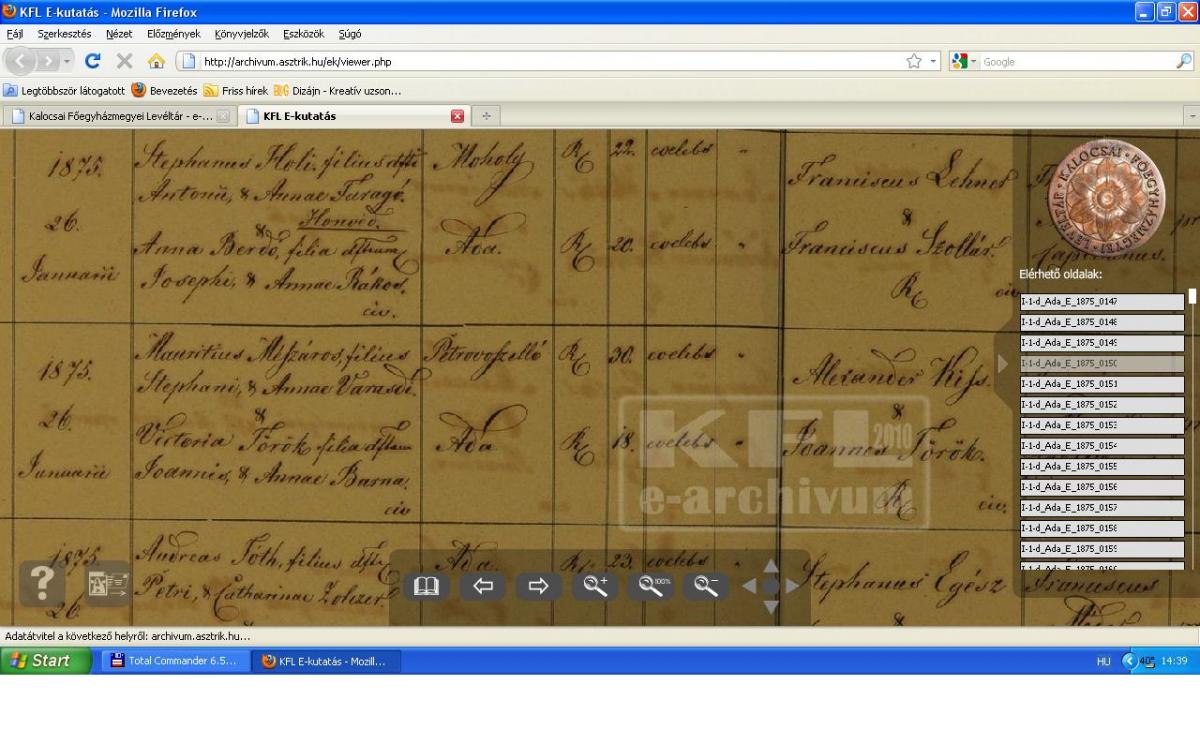 KFL E-kutatás - Mozilla Firefox
Fájl Szerkesztés Nézet Előzmények Könyvjelzők Eszközök Súgó
http://archivum.asztrik.hu/ek/viewer.php
Google
Legtöbbször látogatott Bevezetés Friss hírek Dizájn - Kreatív uzson...
Kalocsai Főegyházmegyei Levéltár - e-... KFL E-kutatás
1875. Stephanus Holi. filius dfti Moholy RC 22. coelebs " Franciscus Lehner
Antonii, & Annae Faragó.
Honvéd.
26. & &
Anna Berdó, filia dftum Ada. RC 20. coelebs " Franciscus Szollár.
Januarii Josephi, & Annae Rákos. RC civ
civ.
1875. Mauritius Mészáros, filius Petrovoszelló RC 30. coelebs "
Stephani, & Annae Varasdi. Alexander Kiss.
26. & &
Victoria Török filia dftum Ada RC 18. coelebs " Joannes Török.
Januarii Joannis, & Annae Barna.
civ RC civ.
1875. Andreas Tóth, filius dfti Ada. RC. 23. coelebs Stephanus Egész Franciscus
Petri, & Catharinae Zolczer
26.
KALOCSAI FŐEGYHÁZMEGYEI LEVÉLTÁR
Elérhető oldalak:
I-1-d_Ada_E_1875_0147
I-1-d_Ada_E_1875_0148
I-1-d_Ada_E_1875_0149
I-1-d_Ada_E_1875_0150
I-1-d_Ada_E_1875_0151
I-1-d_Ada_E_1875_0152
I-1-d_Ada_E_1875_0153
I-1-d_Ada_E_1875_0154
I-1-d_Ada_E_1875_0155
I-1-d_Ada_E_1875_0156
I-1-d_Ada_E_1875_0157
I-1-d_Ada_E_1875_0158
I-1-d_Ada_E_1875_0159
I-1-d_Ada_E_1875_0160
KFL 2010
e-archivum
?
100%
Adatátvitel a következő helyről: archivum.asztrik.hu...
Start Total Commander 6.5... KFL E-kutatás - Mozill... HU 40° 14:39